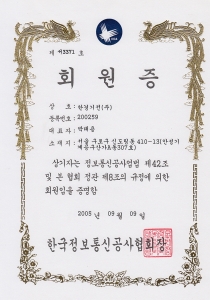 제 3371 호
회원증
상 호: 한결가전(주)
등록번호: 200259
대표자: 박해용
소재지: 서울 구로구 신도림동 410-13(안성기
상기자는 정보통신공사업법 제42조
및 본 협회 정관 제8조의 규정에 의한
회원임을 증명함
2005 년 09 월 09 일
한국정보통신공사협회장